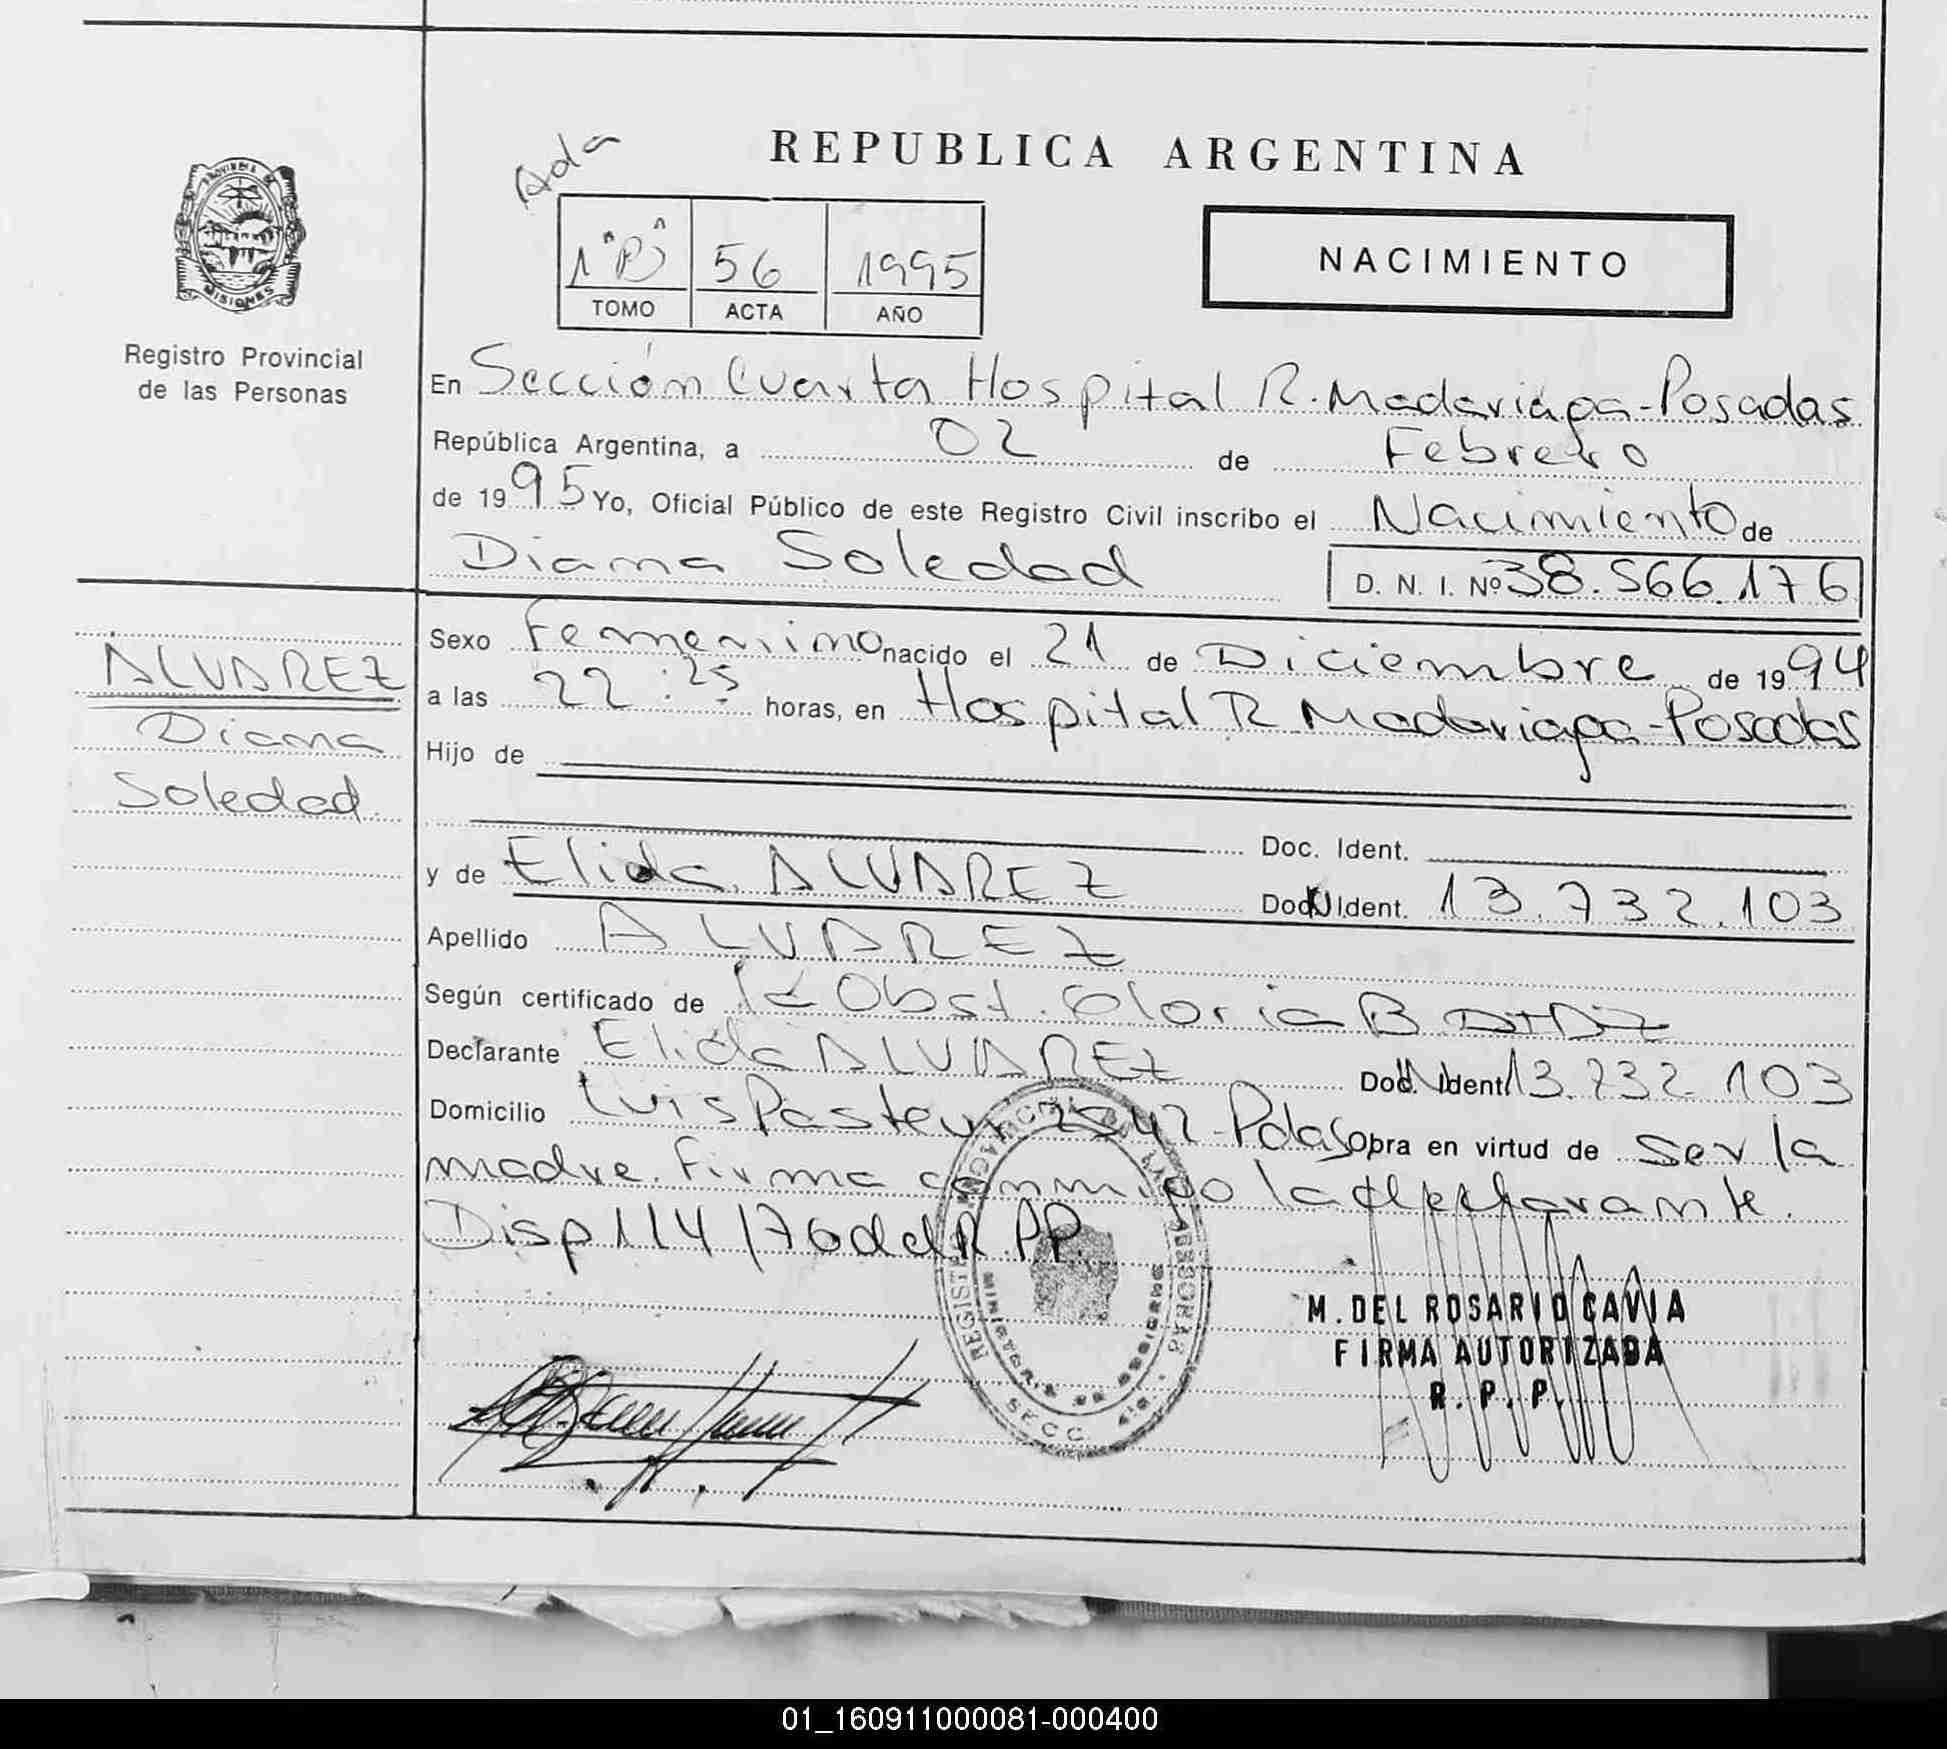 REPUBLICA ARGENTINA
Ada
1 "B" 56 1995
TOMO ACTA AÑO
NACIMIENTO
PROVINCIA DE
MISIONES
Registro Provincial
de las Personas
En Sección Cuarta Hospital R. Madariaga-Posadas
República Argentina, a 02 de Febrero
de 1995 Yo, Oficial Público de este Registro Civil inscribo el Nacimiento de
Diana Soledad D. N. I. Nº 38.566.176
ALVAREZ
Diana
Soledad
Sexo Femenino nacido el 21 de Diciembre de 1994
a las 22:25 horas, en Hospital R Madariaga-Posadas
Hijo de
Doc. Ident.
y de Elida ALVAREZ Doc. Ident. 13.732.103
Apellido ALVAREZ
Según certificado de la Obst. Gloria B DIAZ
Declarante Elida ALVAREZ Doc. Ident. 13.732.103
Domicilio Luis Pasteur 2542-Pdas Obra en virtud de ser la
madre. Firma conmigo la declarante.
Disp 114/76 del R.PP.
M. DEL ROSARIO GAVIA
FIRMA AUTORIZADA
R. P. P.
SECC. 4ta.
01_160911000081-000400